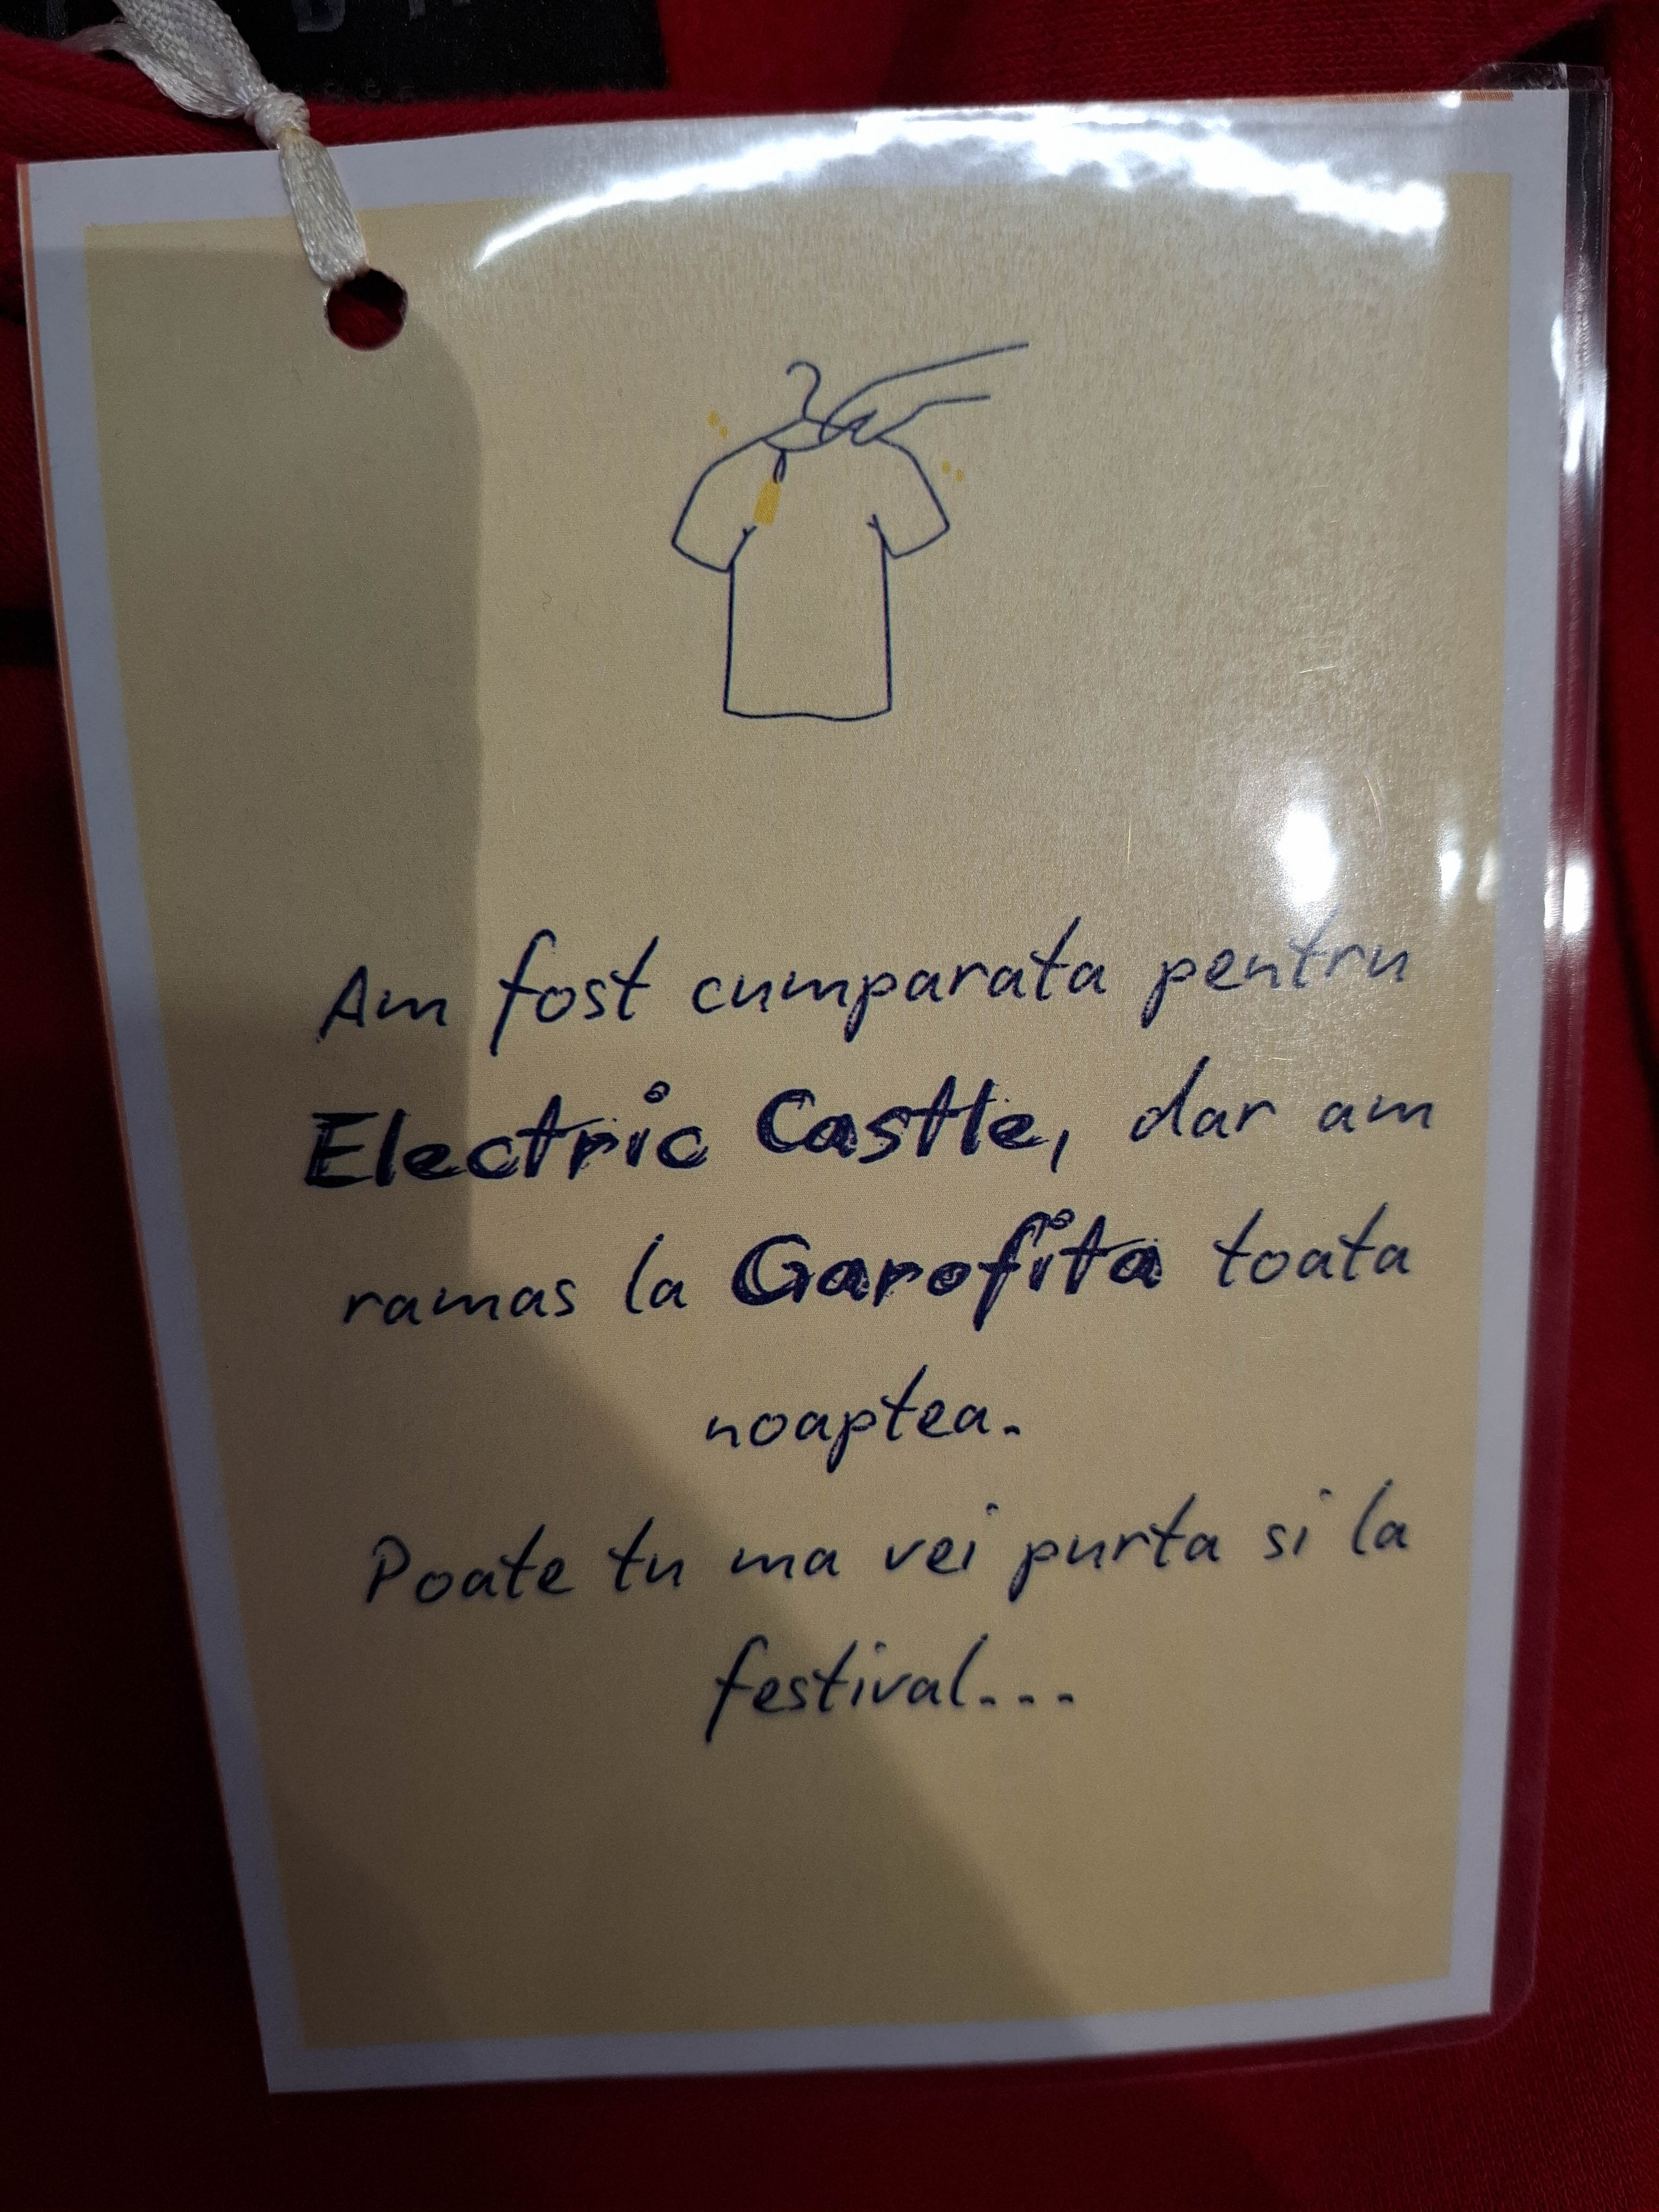 Am fost cumparata pentru
Electric Castle, dar am
ramas la Garofita toata
noaptea.
Poate tu ma vei purta si la
festival...